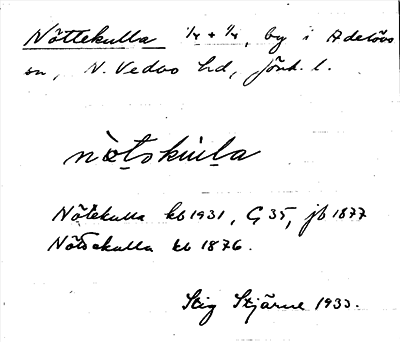 Nöttekulla 1/4 + 1/4, by i Adelövs
sn, N. Vedbo hd, Jönk. l.
nò̤tskùla
Nötekulla kb 1931, G 35, jb 1877
Nötsekulla kb 1876.
Stig Stjärne 1933.